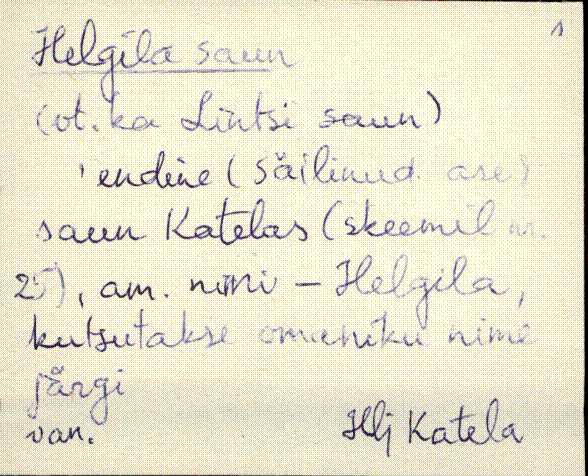 1
Helgila saun
(vt. ka Lintsi saun)
'endine (säilinud ase)
saun Katelas (skeemil nr.
25), am. nimi – Helgila,
kutsutakse omaniku nime
järgi
van. Hlj Katela